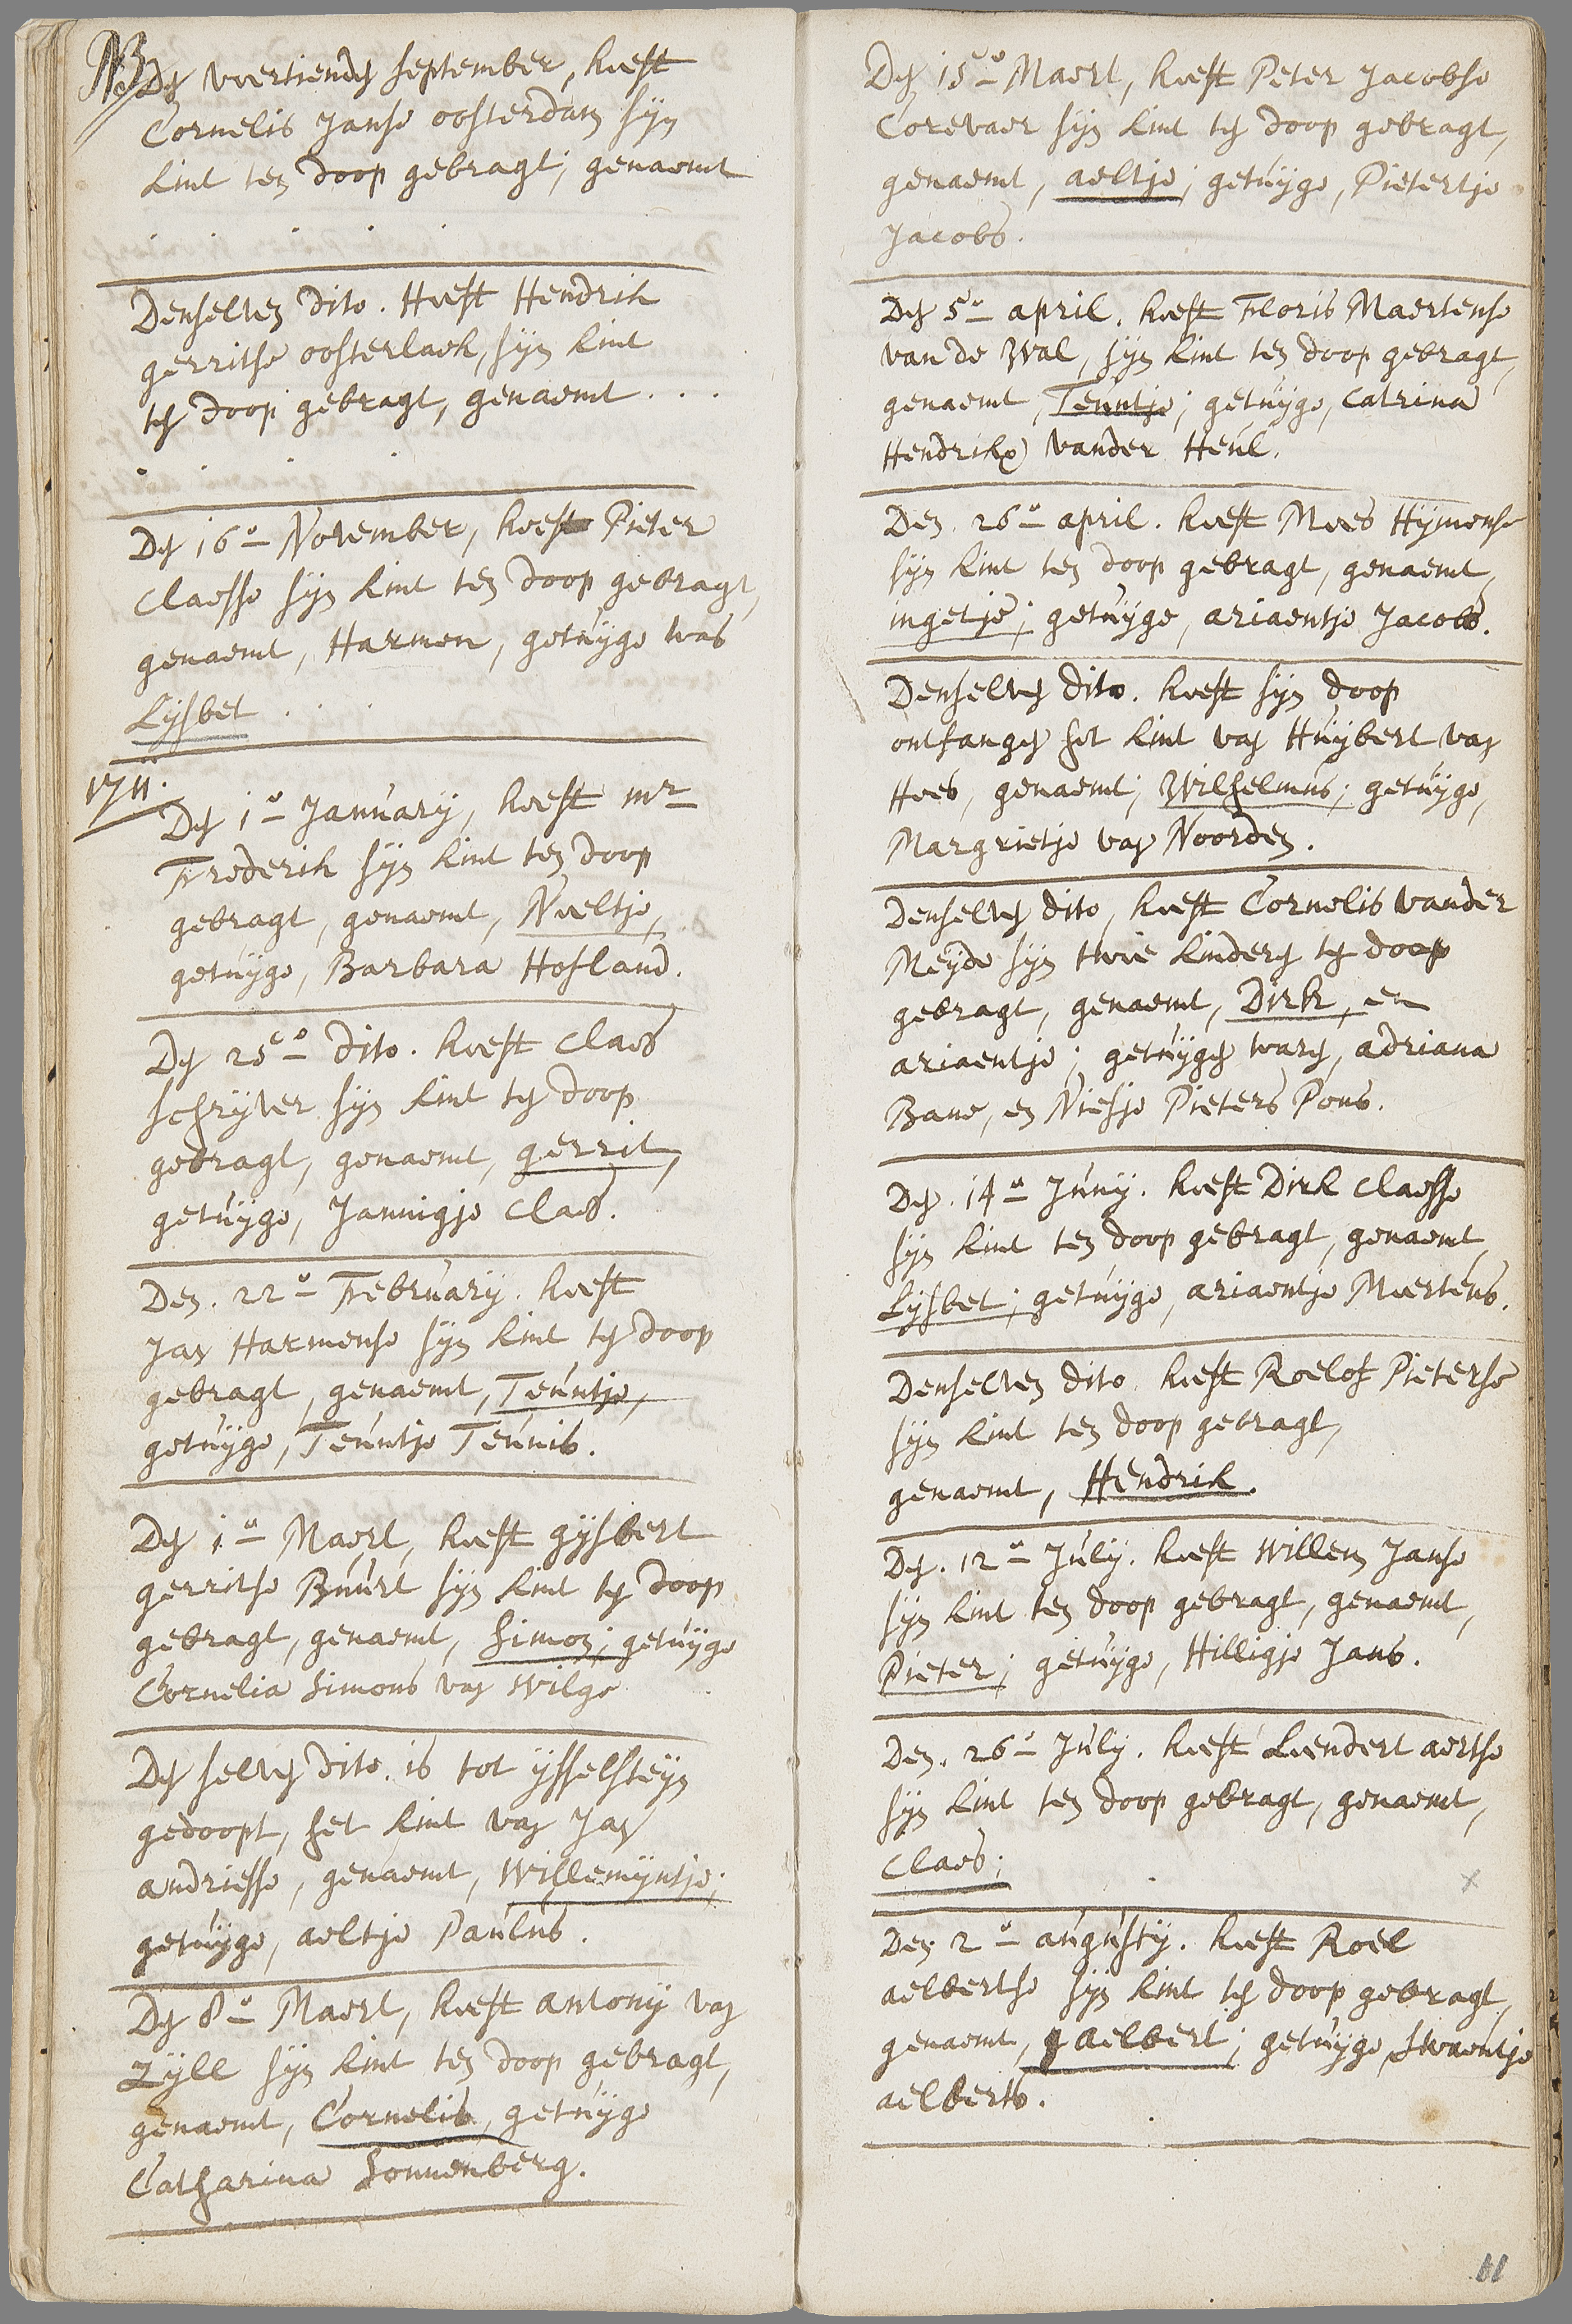 NB Den veertienden september, heeft
Cornelis Janse oosterdam sijn
kint ten doop gebragt; genaemt
. . . . .
Denselven dito. Heeft Hendrik
gerritse oosterlaek, sijn kint
ten doop gebragt, genaemt . . .
. . . .
Den 16o November, heeft Pieter
Claesse sijn kint ten doop gebragt,
genaemt, Harmen, getuijge was
Lijsbet . . .
1711.
Den 1o January, heeft mr
Frederik sijn kint ten doop
gebragt, genaemt, Neeltje,
getuijge, Barbara Hofland.
Den 25o dito. heeft Claes
schrijver sijn kint ten doop
gebragt, genaemt, gerrit,
getuijge, Jannigje Claes.
Den. 22o February. heeft
Jan Harmense sijn kint ten doop
gebragt, genaemt, Teuntje,
getuijge, Teuntje Teunis.
Den 1o Maert, heeft gijsbert
gerritse Buurt sijn kint ten doop
gebragt, genaemt, Simon; getuijge
Cornelia Simons van Wilge
Den selven dito. is tot ijsselsteijn
gedoopt, het kint van Jan
andriesse, genaemt, Willemijntje;
getuijge, aeltje Paulus.
Den 8o Maert, heeft antonij van
Zijll sijn kint ten doop gebragt,
genaemt, Cornelis, getuijge
Catharina Sonnenberg.
Den 15o Maert, heeft Peter Jacobse
Corevaer sijn kint ten doop gebragt,
genaemt, aeltje; getuijge, Pietertje
Jacobs.
Den 5o april. heeft Floris Maertense
van de Wal, sijn kint ten doop gebragt,
genaemt, Teuntje; getuijge, Catrina
Hendrikx vander Heul.
Den. 26o april. heeft Mees Hijmense
sijn kint ten doop gebragt, genaemt,
ingetje; getuijge, ariaentje Jacobs.
Denselven dito. heeft sijn doop
ontfangen het kint van Huijbert van
Hees, genaemt; Wilhelmus; getuijge,
Margrietje van Noorden.
Denselven dito, heeft Cornelis vander
Meijde sijn twee kinderen ten doop
gebragt, genaemt, Dirk, en
ariaentje; getuijgen waren, adriana
Bane, en Niesje Pieters Pons.
Den. 14o Junij. heeft Dirk Claesse
sijn kint ten doop gebragt, genaemt,
Lijsbet; getuijge, ariaentje Meertens.
Denselven dito. heeft Roelof Pieterse
sijn kint ten doop gebragt,
genaemt, Hendrik.
Den. 12o July. heeft Willem Janse
sijn kint ten doop gebragt, genaemt,
Pieter; getuijge, Hilligje Jans.
Den. 26o July. heeft Leendert aertse
sijn kint ten doop gebragt, genaemt,
Claes;
Den 2o augusty. heeft Roel
aelbertse sijn kint ten doop gebragt,
genaemt, aelbert; getuijge, Swaentje
aelberts.
11